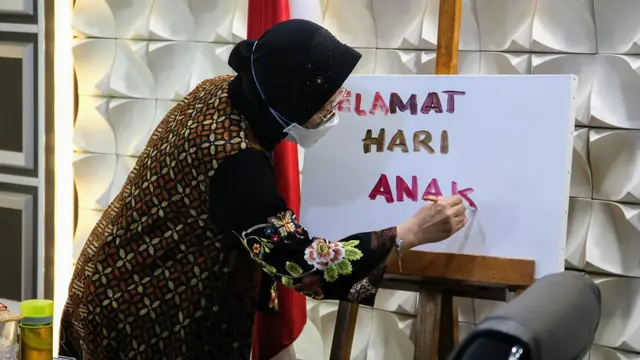 SELAMAT
HARI
ANAK